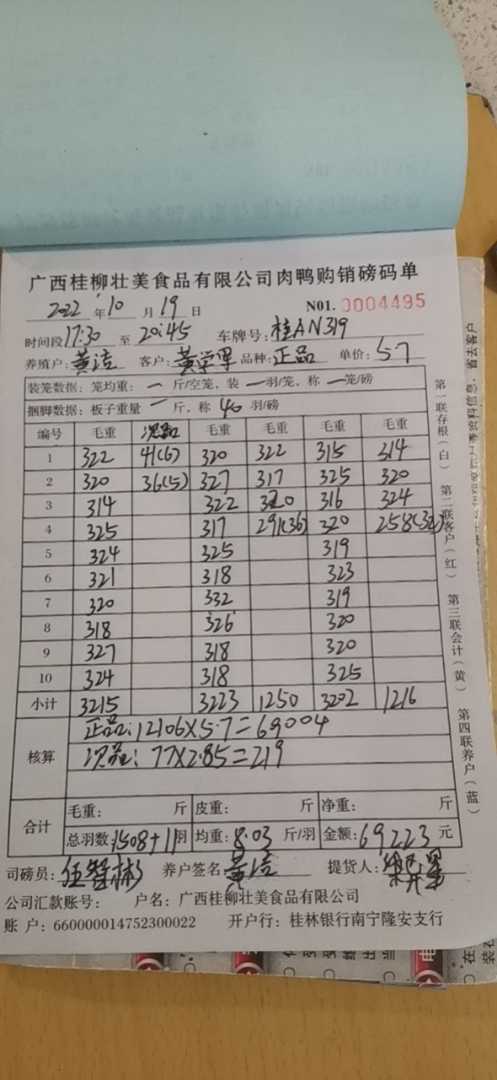 广西桂柳壮美食品有限公司肉鸭购销磅码单
2022 年 10 月 19 日 NO1. 0004495
时间段 17:30 至 20:45 车牌号: 桂AN319
养殖户: 黄洁 客户: 黄荣军 品种: 正品 单价: 5.7
装笼数据: 笼均重: 一 斤/空笼, 装 一 羽/笼, 称 一 笼/磅
捆脚数据: 板子重量 一 斤, 称 40 羽/磅
编号 毛重 次品 毛重 毛重 毛重 毛重
1 322 41(6) 320 322 315 314
2 320 36(5) 327 317 325 320
3 314 322 320 316 324
4 325 317 291(36) 320 258(32)
5 324 325 319
6 321 318 323
7 320 332 319
8 318 326 320
9 327 318 320
10 324 318 325
小计 3215 3223 1250 3202 1216
核算
正品: 12106×5.7=69004
次品: 77×2.85=219
合计
毛重: 斤 皮重: 斤 净重: 斤
总羽数 1508+11 羽 均重: 8.03 斤/羽 金额: 69223 元
司磅员: 伍智彬 养户签名: 黄洁 提货人:
公司汇款账号: 户名: 广西桂柳壮美食品有限公司
账 户: 660000014752300022 开户行: 桂林银行南宁隆安支行
第一联存根(白) 第二联客户(红) 第三联会计(黄) 第四联养户(蓝)